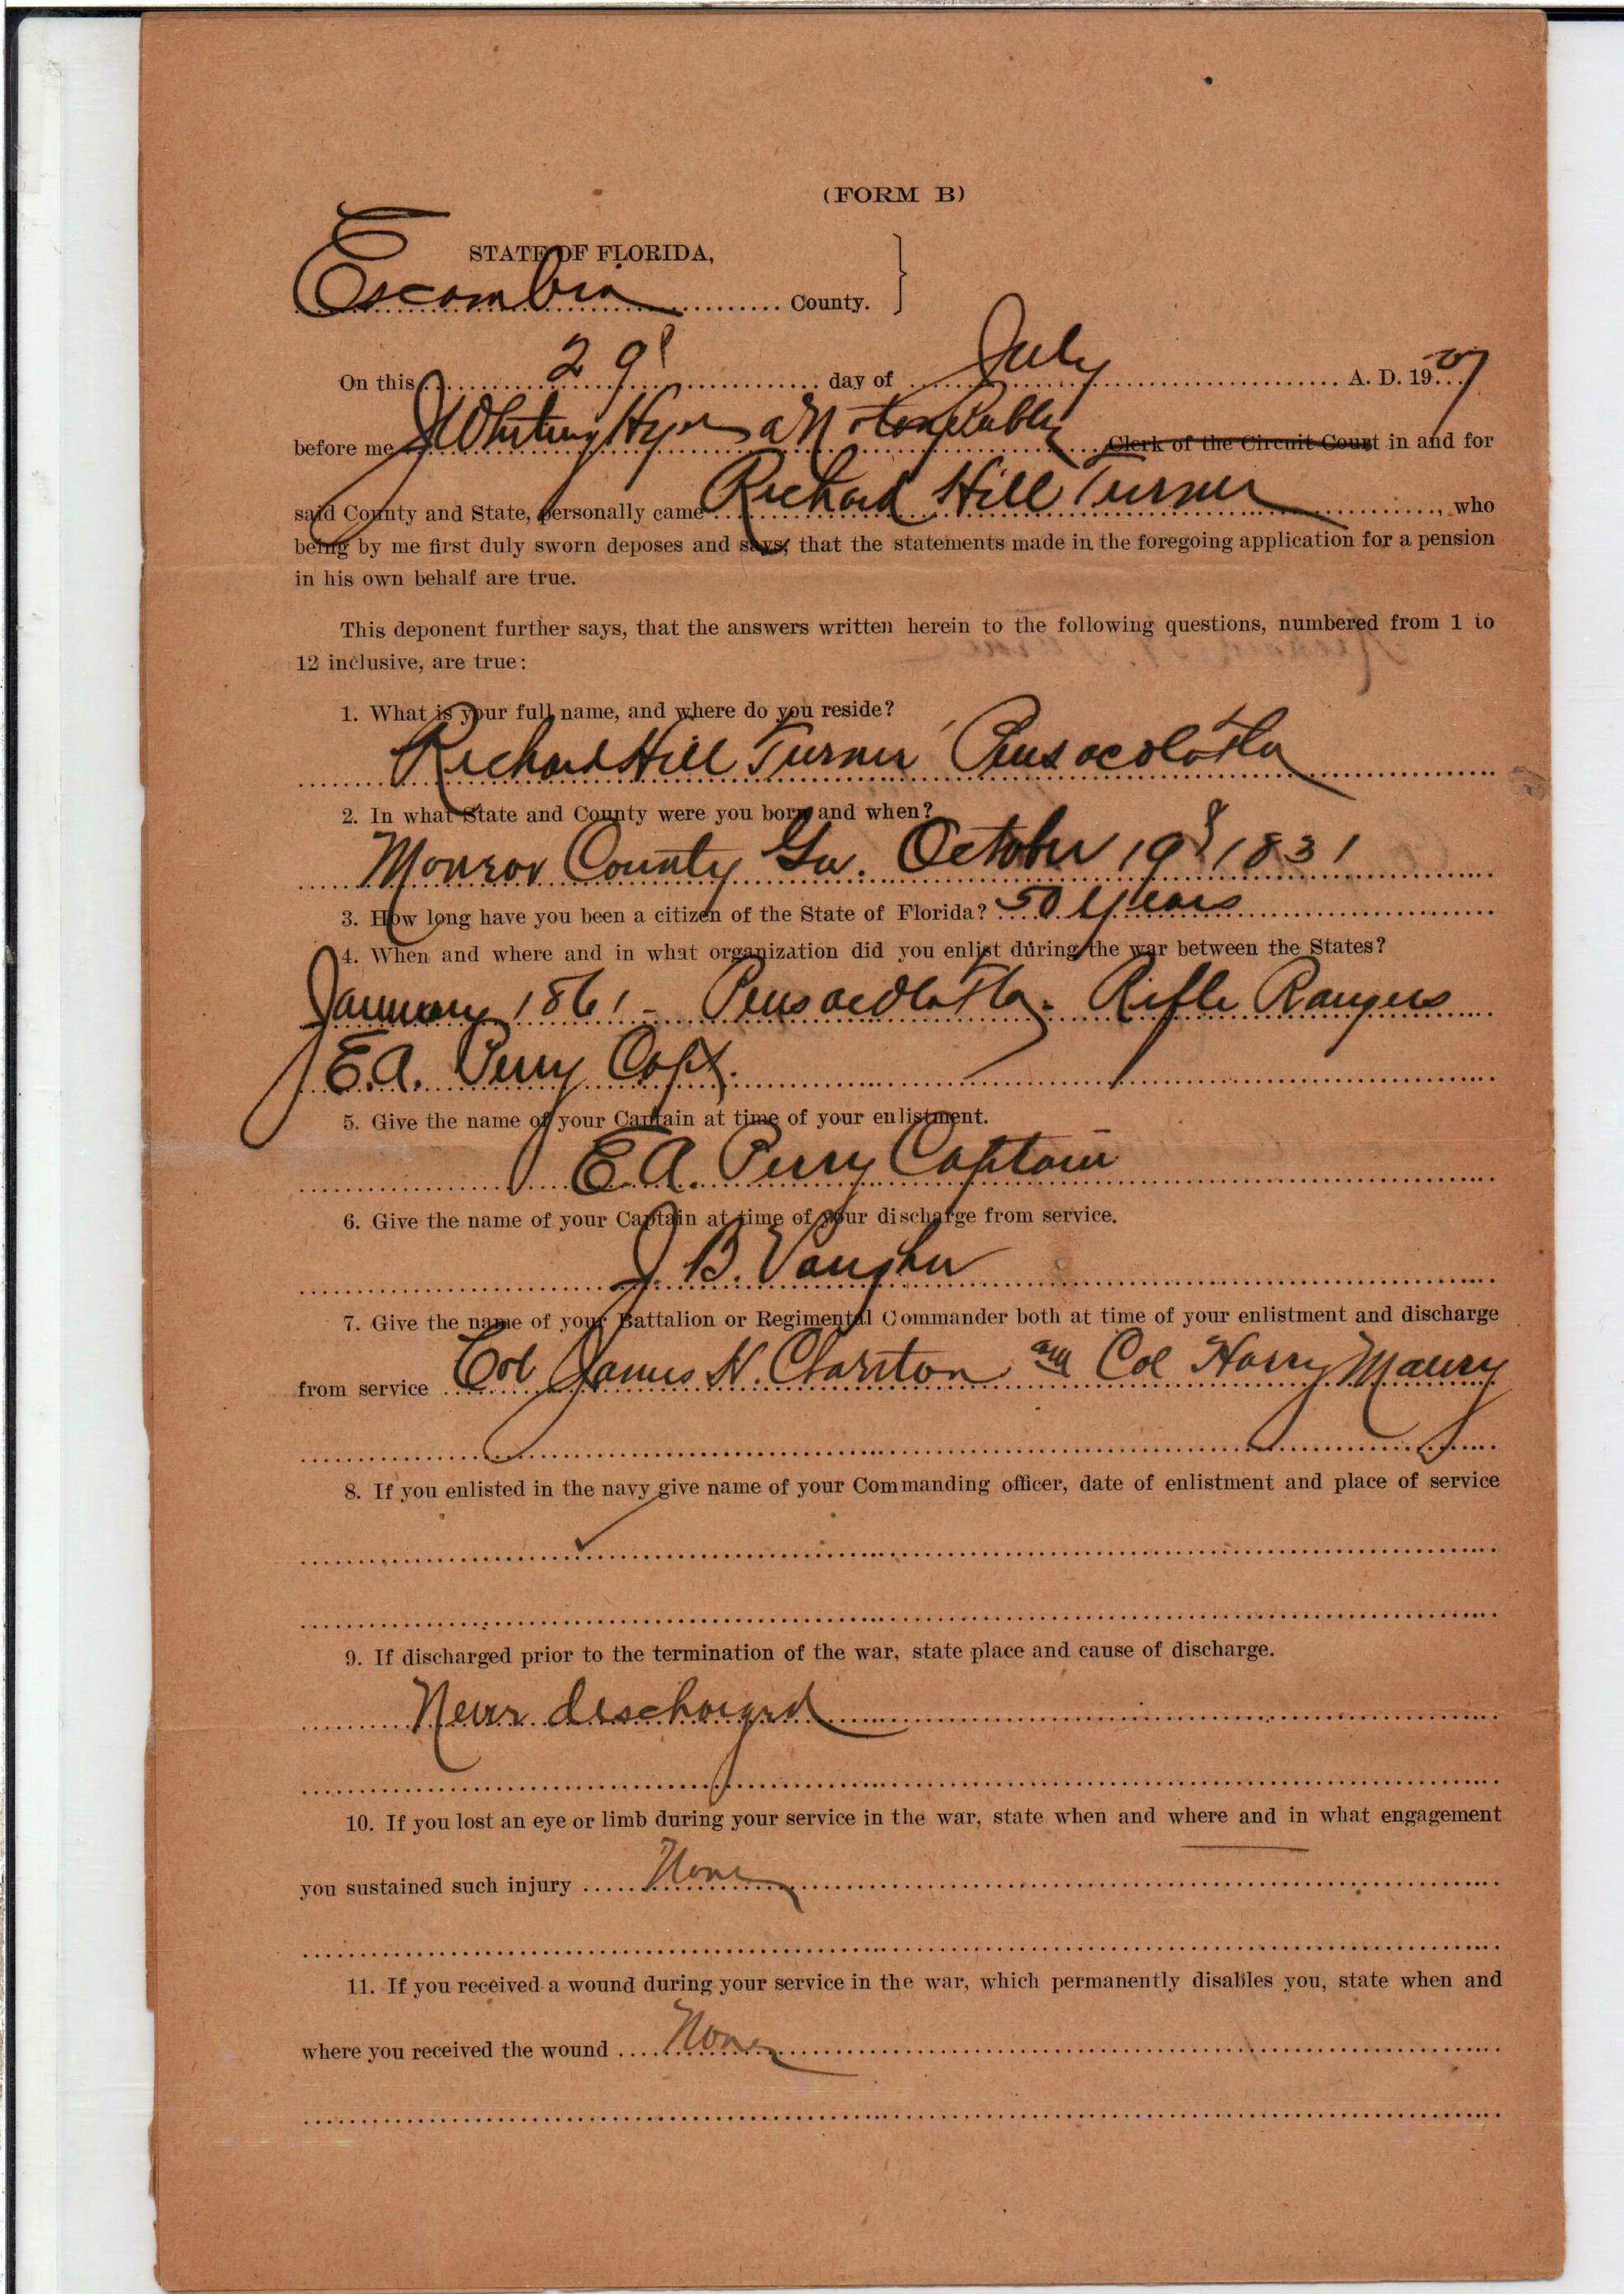 (FORM B)
STATE OF FLORIDA,
Escambia County.
On this 29 day of July A. D. 1907
before me J Whiting Hyer a Notary Public Clerk of the Circuit Court in and for
said County and State, personally came Richard Hill Turner, who
being by me first duly sworn deposes and says, that the statements made in the foregoing application for a pension
in his own behalf are true.
This deponent further says, that the answers written herein to the following questions, numbered from 1 to
12 inclusive, are true:
1. What is your full name, and where do you reside?
Richard Hill Turner Pensacola Fla
2. In what State and County were you born and when?
Monroe County Ga. October 19 1831
3. How long have you been a citizen of the State of Florida? 50 Years
4. When and where and in what organization did you enlist during the war between the States?
January 1861 - Pensacola Fla. Rifle Rangers
E.A. Perry Capt.
5. Give the name of your Captain at time of your enlistment.
E.A. Perry Captain
6. Give the name of your Captain at time of your discharge from service.
J. B. Vaughn
7. Give the name of your Battalion or Regimental Commander both at time of your enlistment and discharge
from service Col James H. Clanton and Col Harry Maury
8. If you enlisted in the navy give name of your Commanding officer, date of enlistment and place of service
9. If discharged prior to the termination of the war, state place and cause of discharge.
Never discharged
10. If you lost an eye or limb during your service in the war, state when and where and in what engagement
you sustained such injury None
11. If you received a wound during your service in the war, which permanently disables you, state when and
where you received the wound None